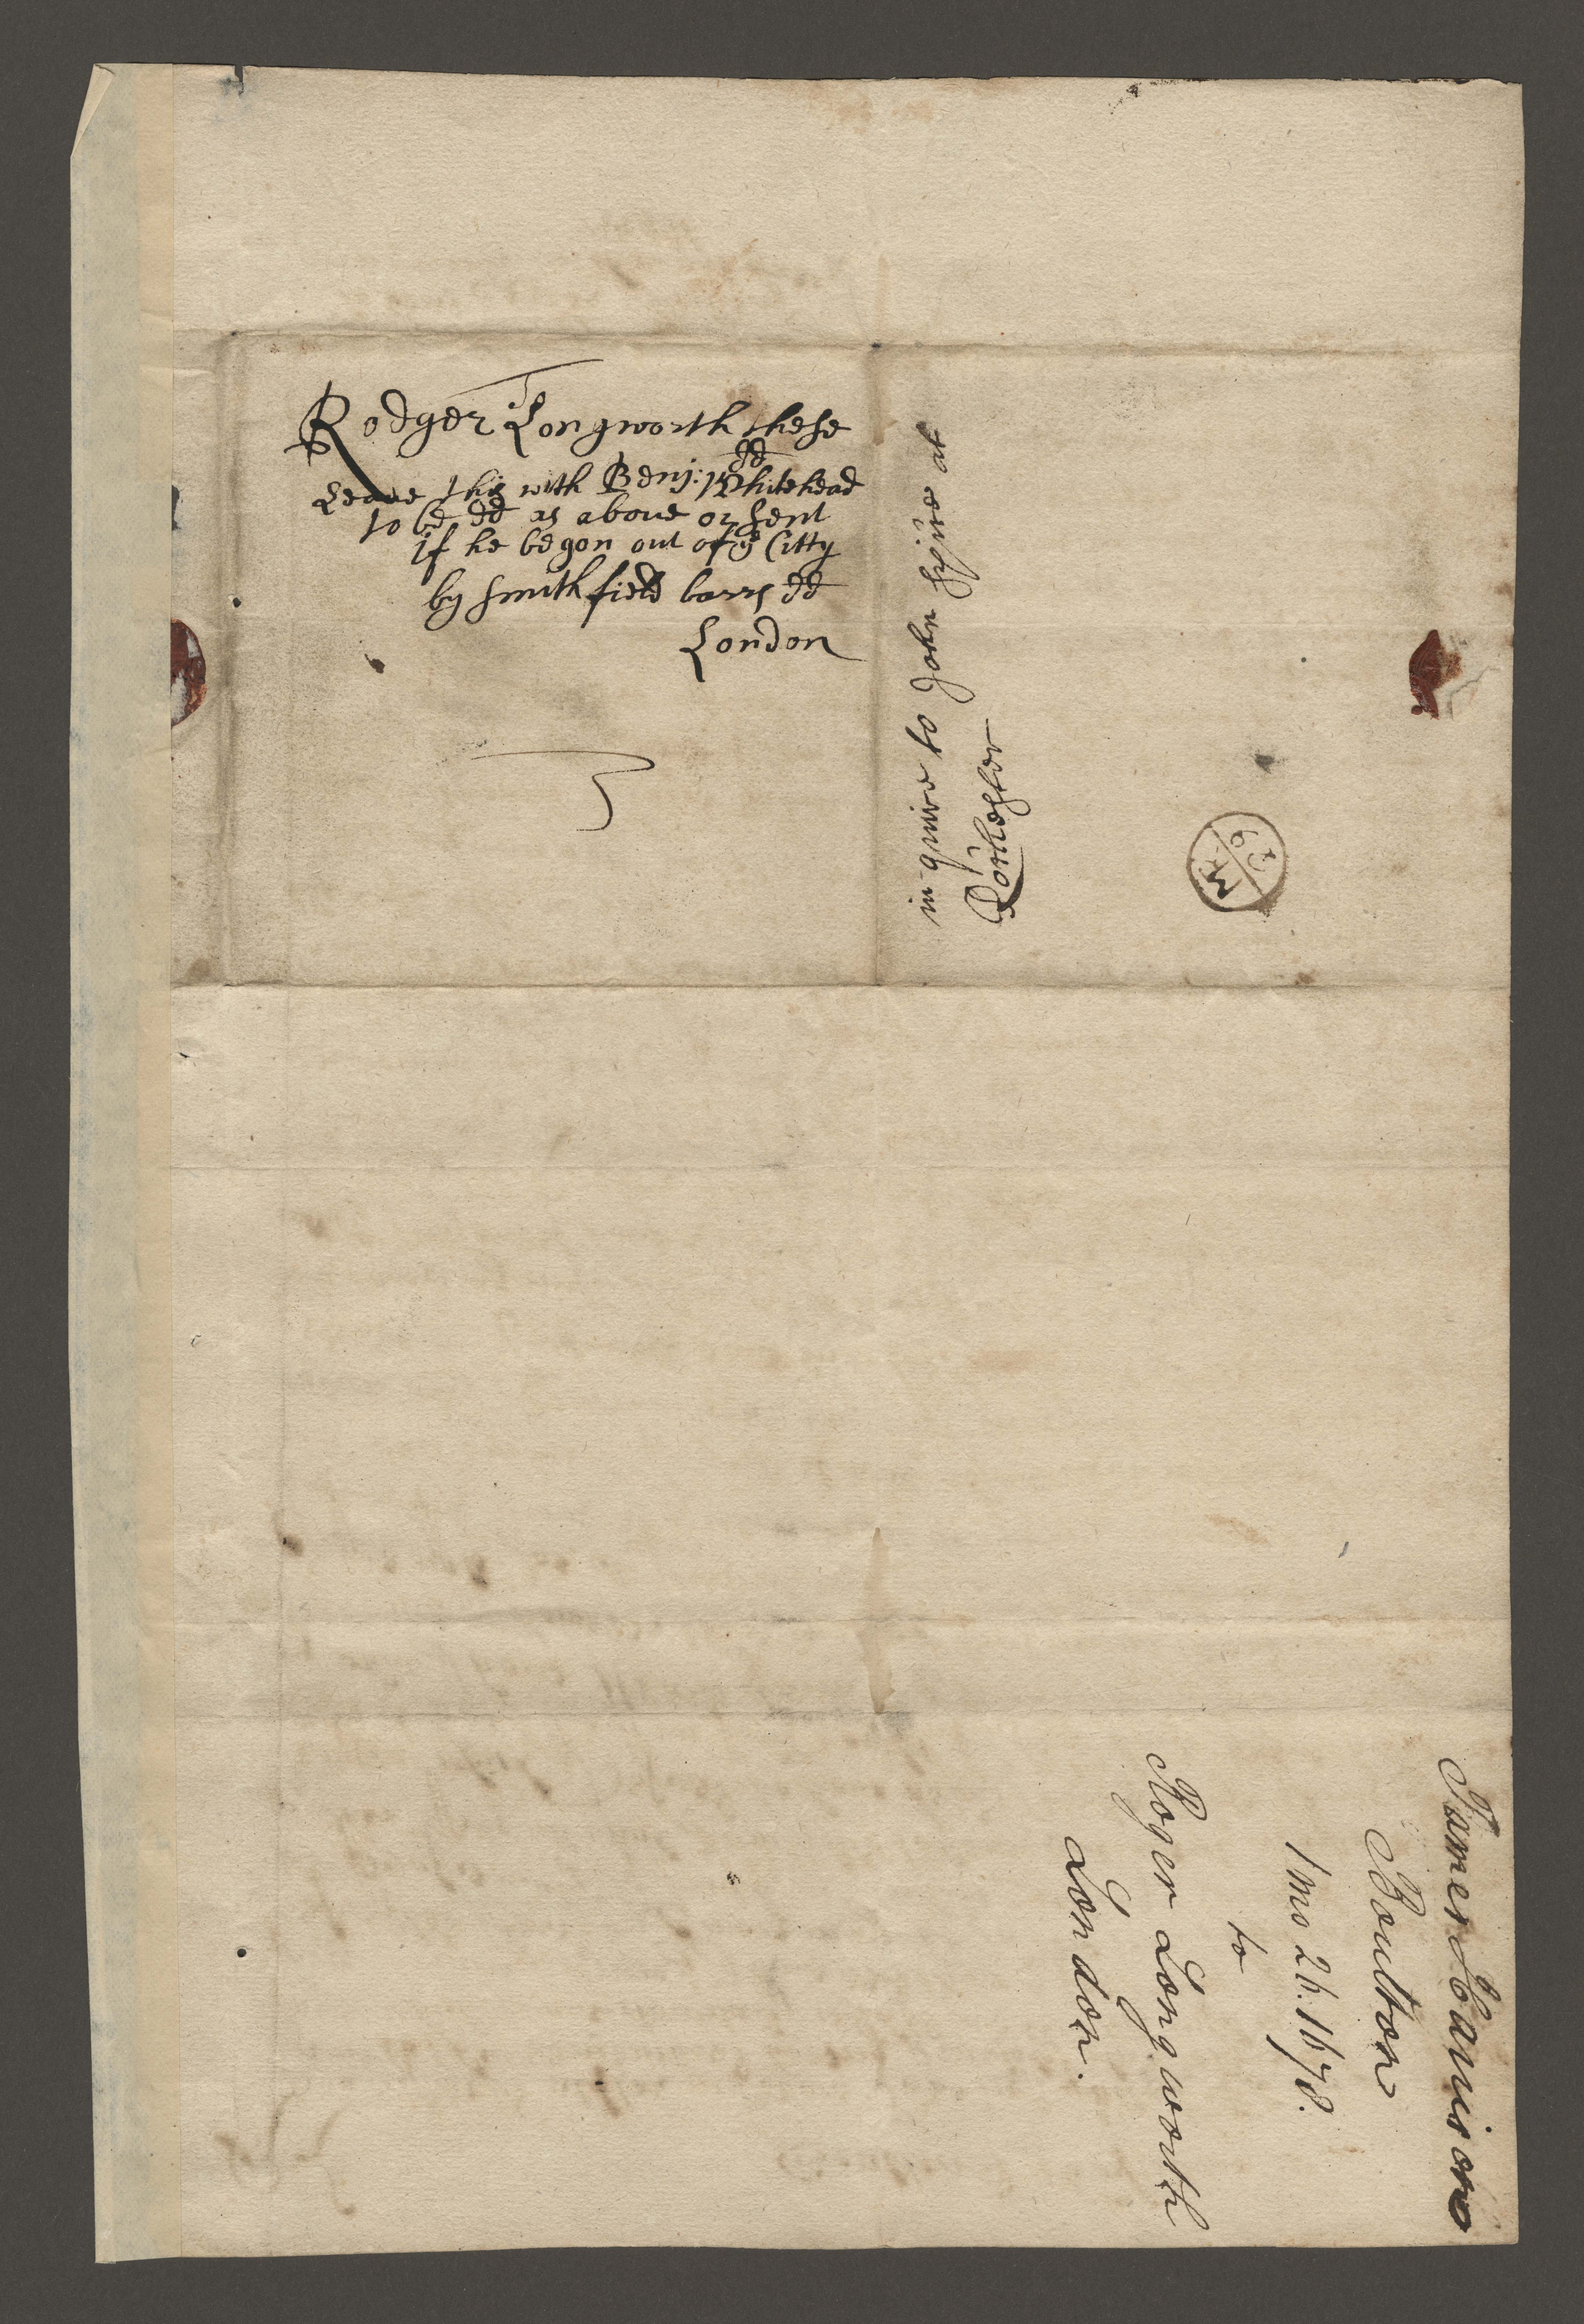 Rodger Longworth these
dd
Leave this with Benj: Whitehead
to be dd as above or sent
if he be gon out of ye Citty
by smithfield barrs dd
London
inquire to John at
Rochester
James Harrison
Boulton
1 mo 26. 1678.
to
Roger Longworth
London.